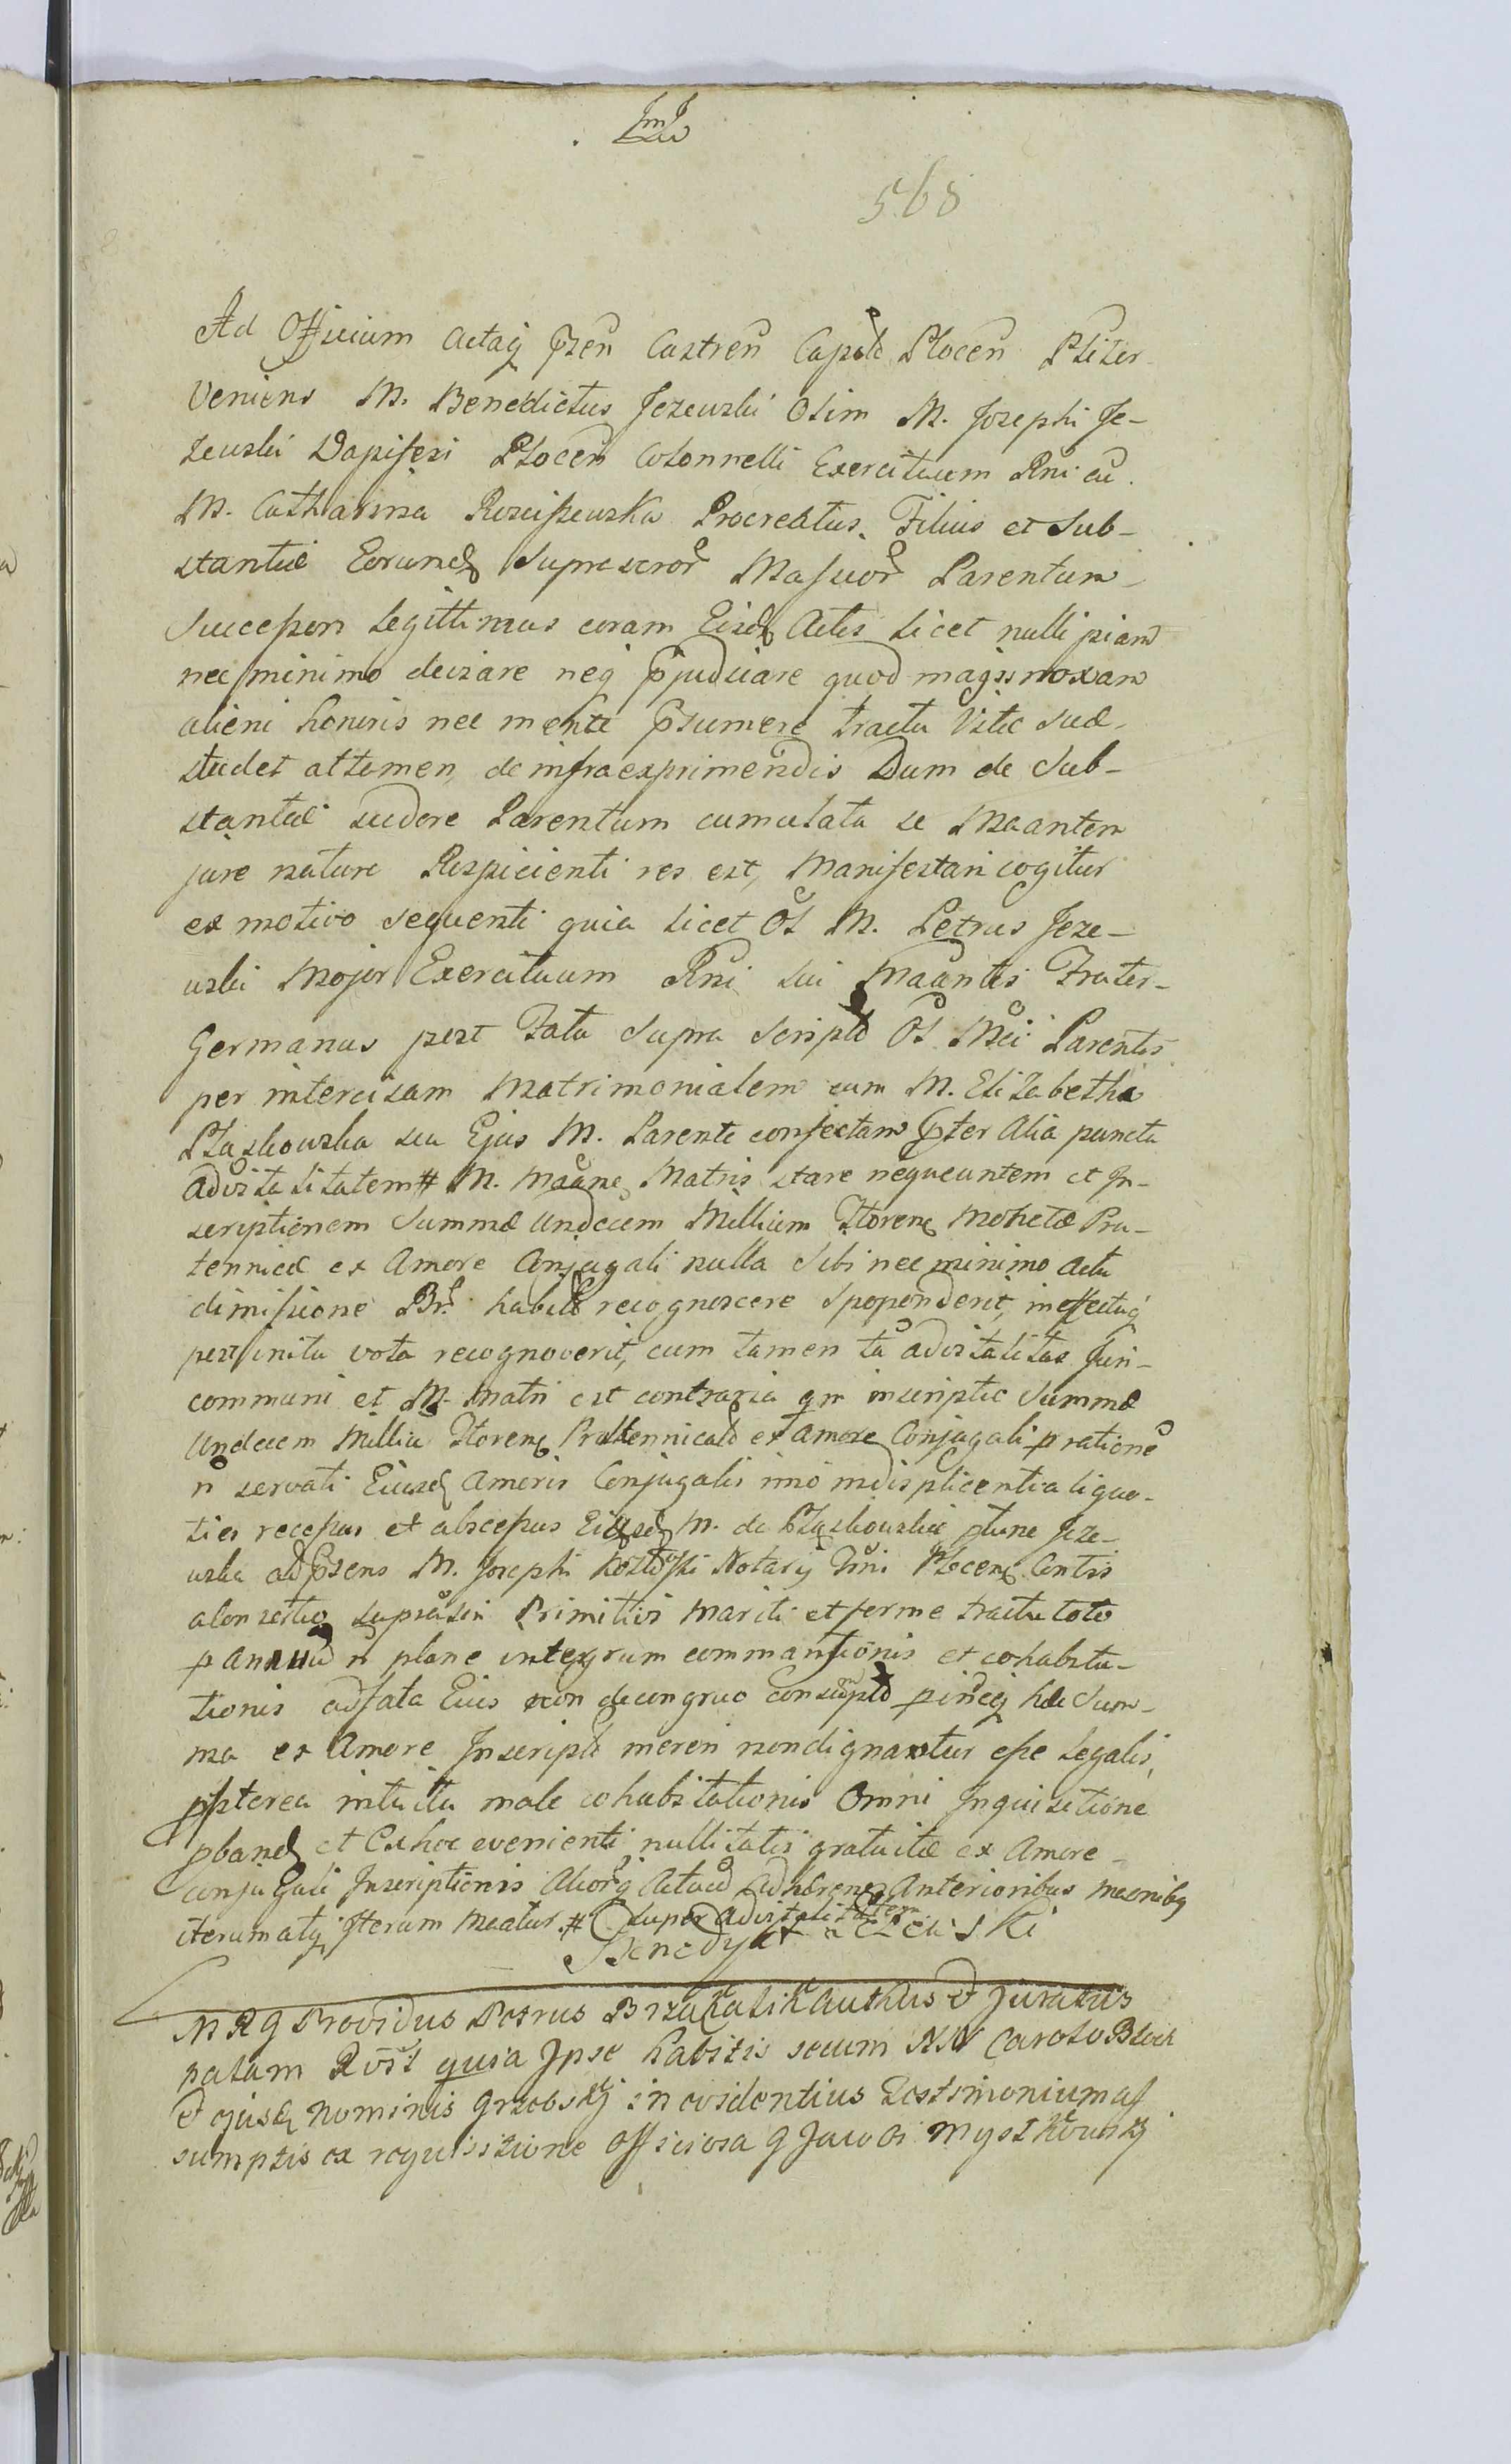 568
Ad Officium Actaq pzen Castren Capild Plocen Pliter
Veniens M. Benedictus Jezewski Olim M. Josephi Je-
zewski Dapiferi Plocen Colonnelli Exercituum Rni cu
M. Catharina Rosciszewska Procreatus Filius et Sub-
stantiæ Eorund Suprascror Magficor Parentum
Successor Legittimus coram Eisd Actis licet nulli piam
nec minimo decisare neq pjudiciare quod magis noxam
alieni honoris nec mente psumere tractu Vitæ suæ
studet attamen de infraexprimendis Dum de Sub-
stantiæ sudore Parentum cumulata se Maantem
jure naturæ Respicienti res est, Manifestari cogitur
ex motivo sequenti quia licet Ol M. Petrus Jeze-
wski Major Exercituum Rni sui Maantis Frater
Germanus post Fata Supra Scripto Ol Mci Parentis
per intercisam Matrimonialem cum M. Elizabetha
Płaskowska seu Ejus M. Parente confectam pter Alia puncta
advitalitatem # M. Maane Matris stare nequeuntem et In-
scriptionem Summæ Undecem Millium Floren Monetæ Pru-
tennicæ ex Amore Conjugali nulla Sibi nec minimo actu
dimissione Br habita recognoscere Spoponderit, ineffectuq
post inita vota recognoverit, cum tamen ta advitalitas Juri
communi et M. Matri est contraria qm inscriptio Summæ
Undecem Millia Floren Prutennicald ex amore Conjugali p ratione
n servati Eiusd Amoris Conjugalis imo indisplicentia liquo-
ties recessus et abscessus Eiusd M. de Płaskowskie ptunc Jeze-
wska ad psens M. Josephi Kozłoski Notarij Trni Plocen Contis
a Consortio suprasri Primitivi Mariti et ferme tractu toto
p annuu n plane integrum commansionis et cohabita-
tionis ad fata Eius non decongruo consumpto pindeq hæc Sum-
ma ex Amore Inscripta mereri non dignantur esse Legalis,
ppterea intuitu male cohabitationis Omni Inquisitione
pband et Ex hoc evenienti nullitatis gratuitæ ex Amore
conjugali Inscriptionis Aliorq Actuu Adhæren Anterioribus Maonibq
iterumatq Iterum Maatur # super advitalitatem
Benedykt Jezewski
M R g Providus Petrus Brzakalik authus & Juratus
palam Rost quia Ipse habitis secum NN Carolo Block
& ejusd nominis Grzebskj in evidentius Testimonium as
sumptis ex requisitione officiosa g Jacobi Mystkowskj